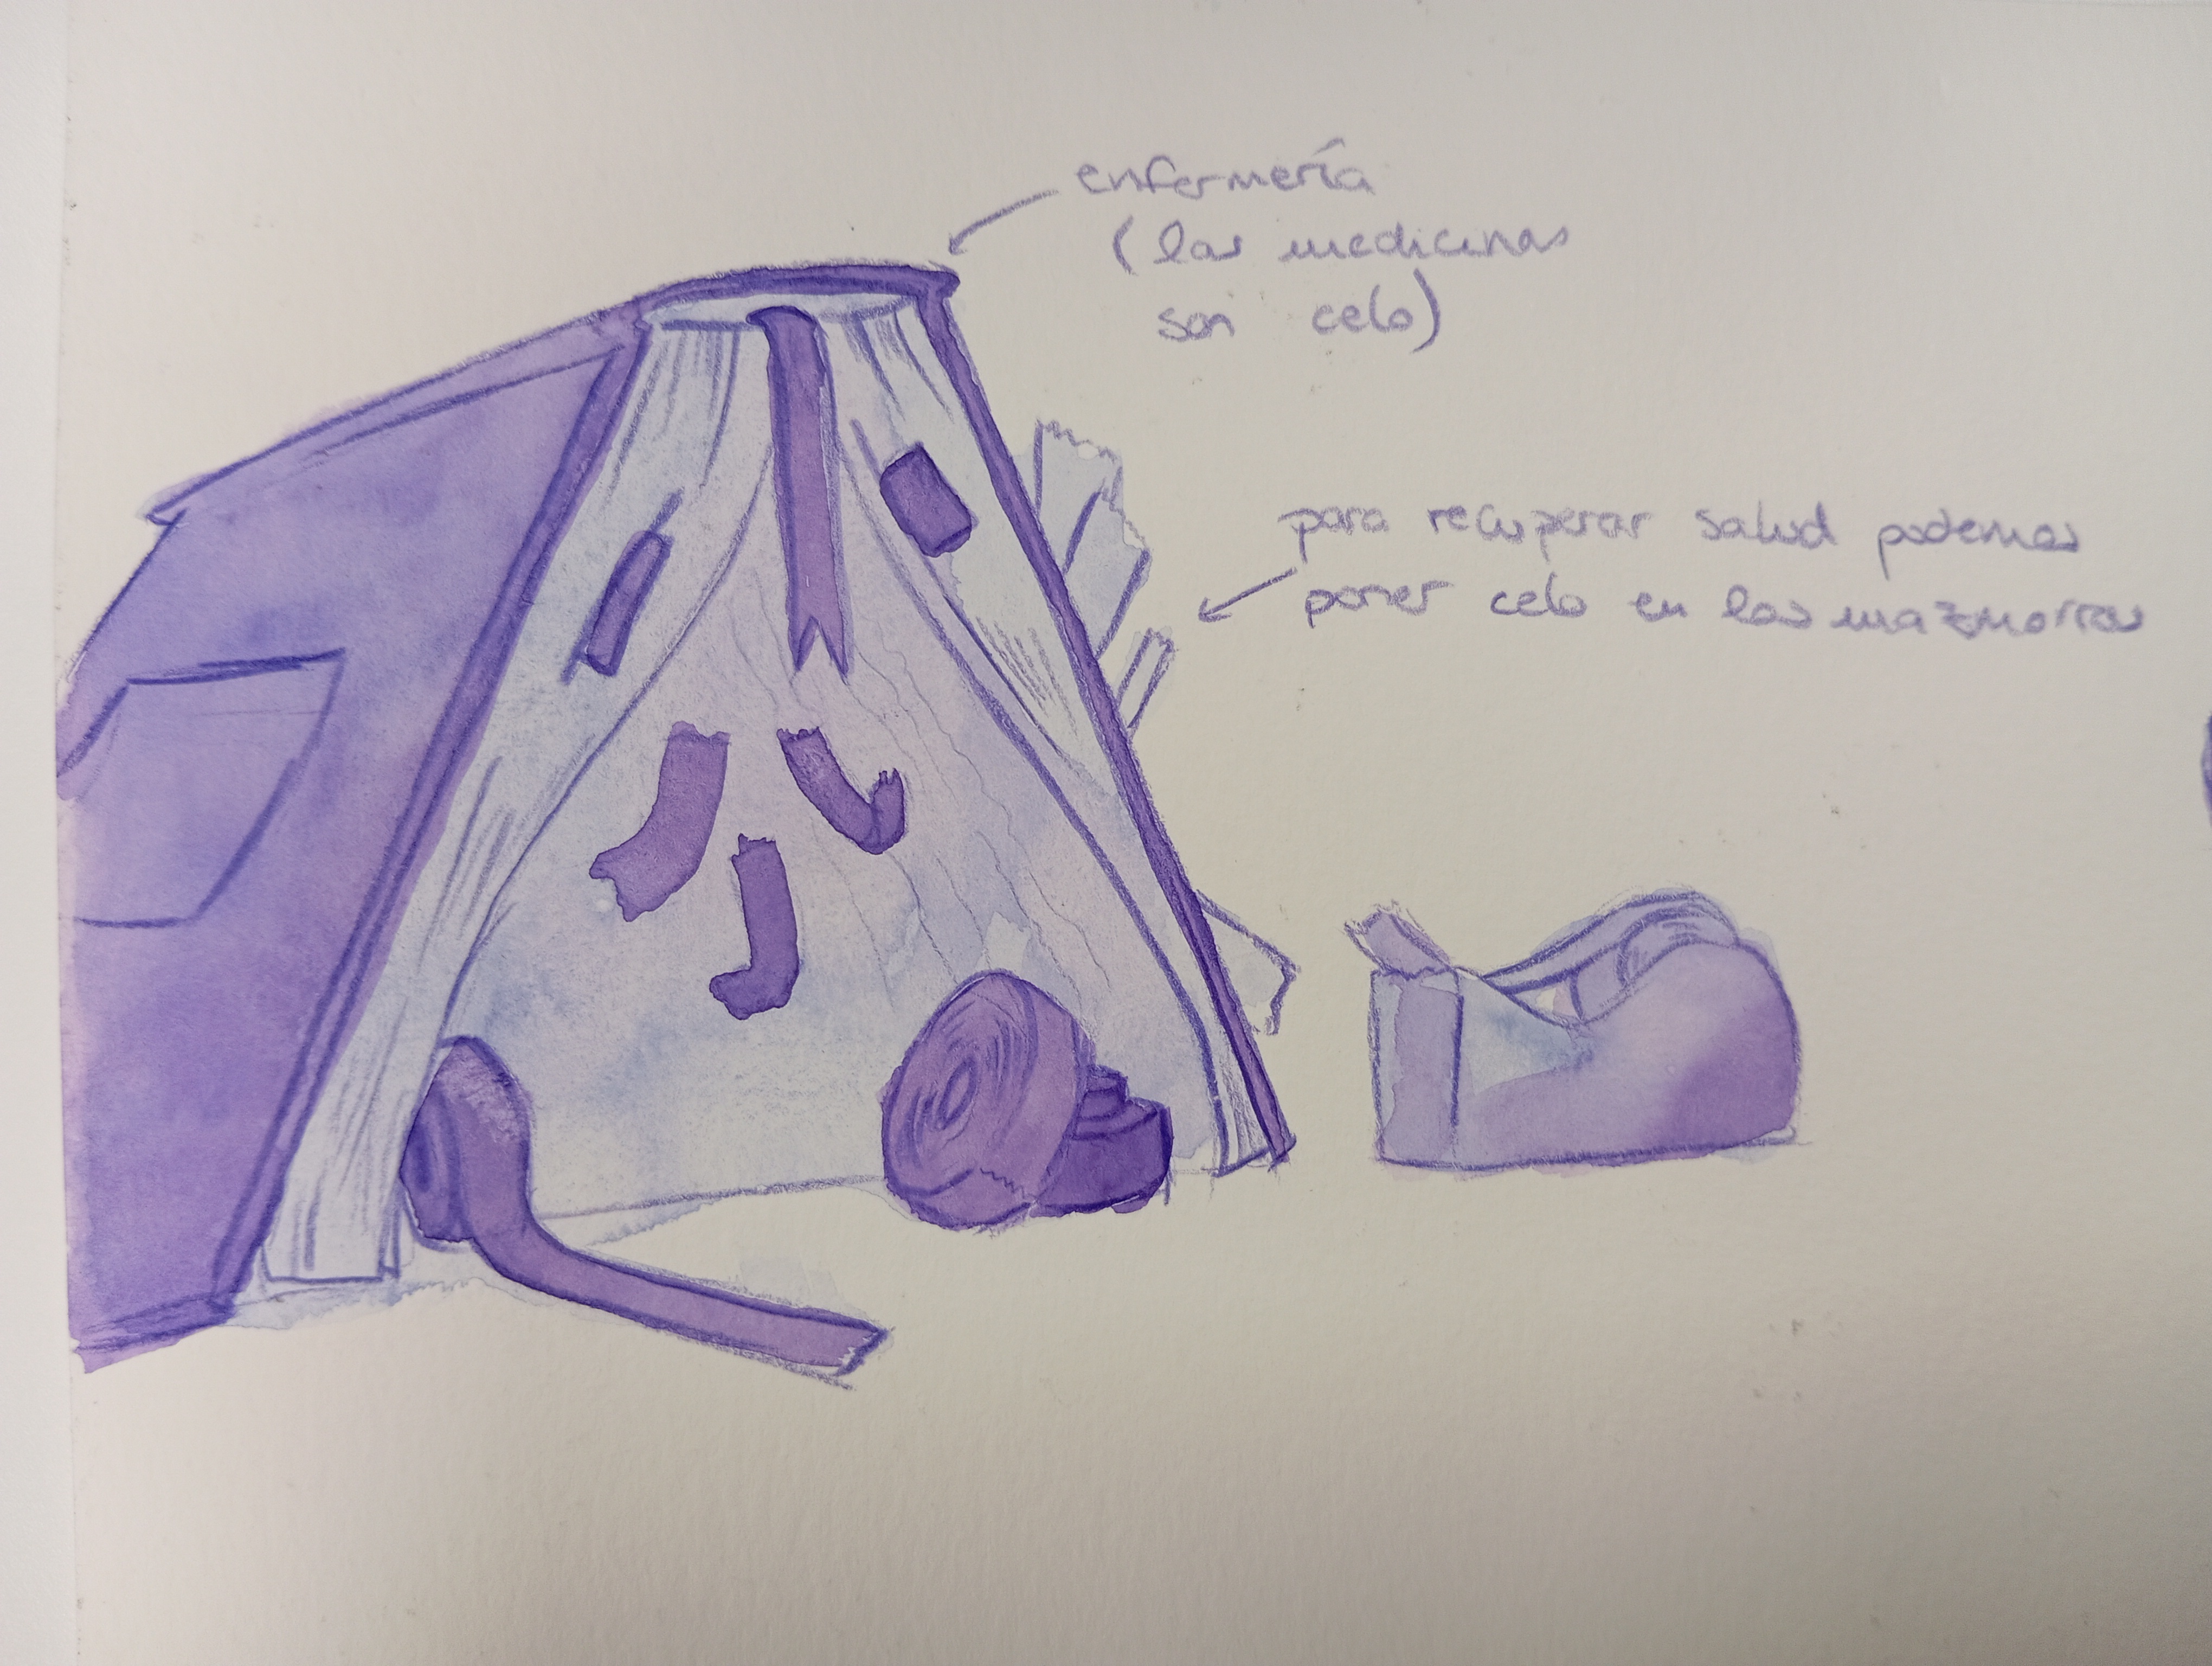 enfermería
(las medicinas
son celo)
para recuperar salud podemos
poner celo en las mazmorras